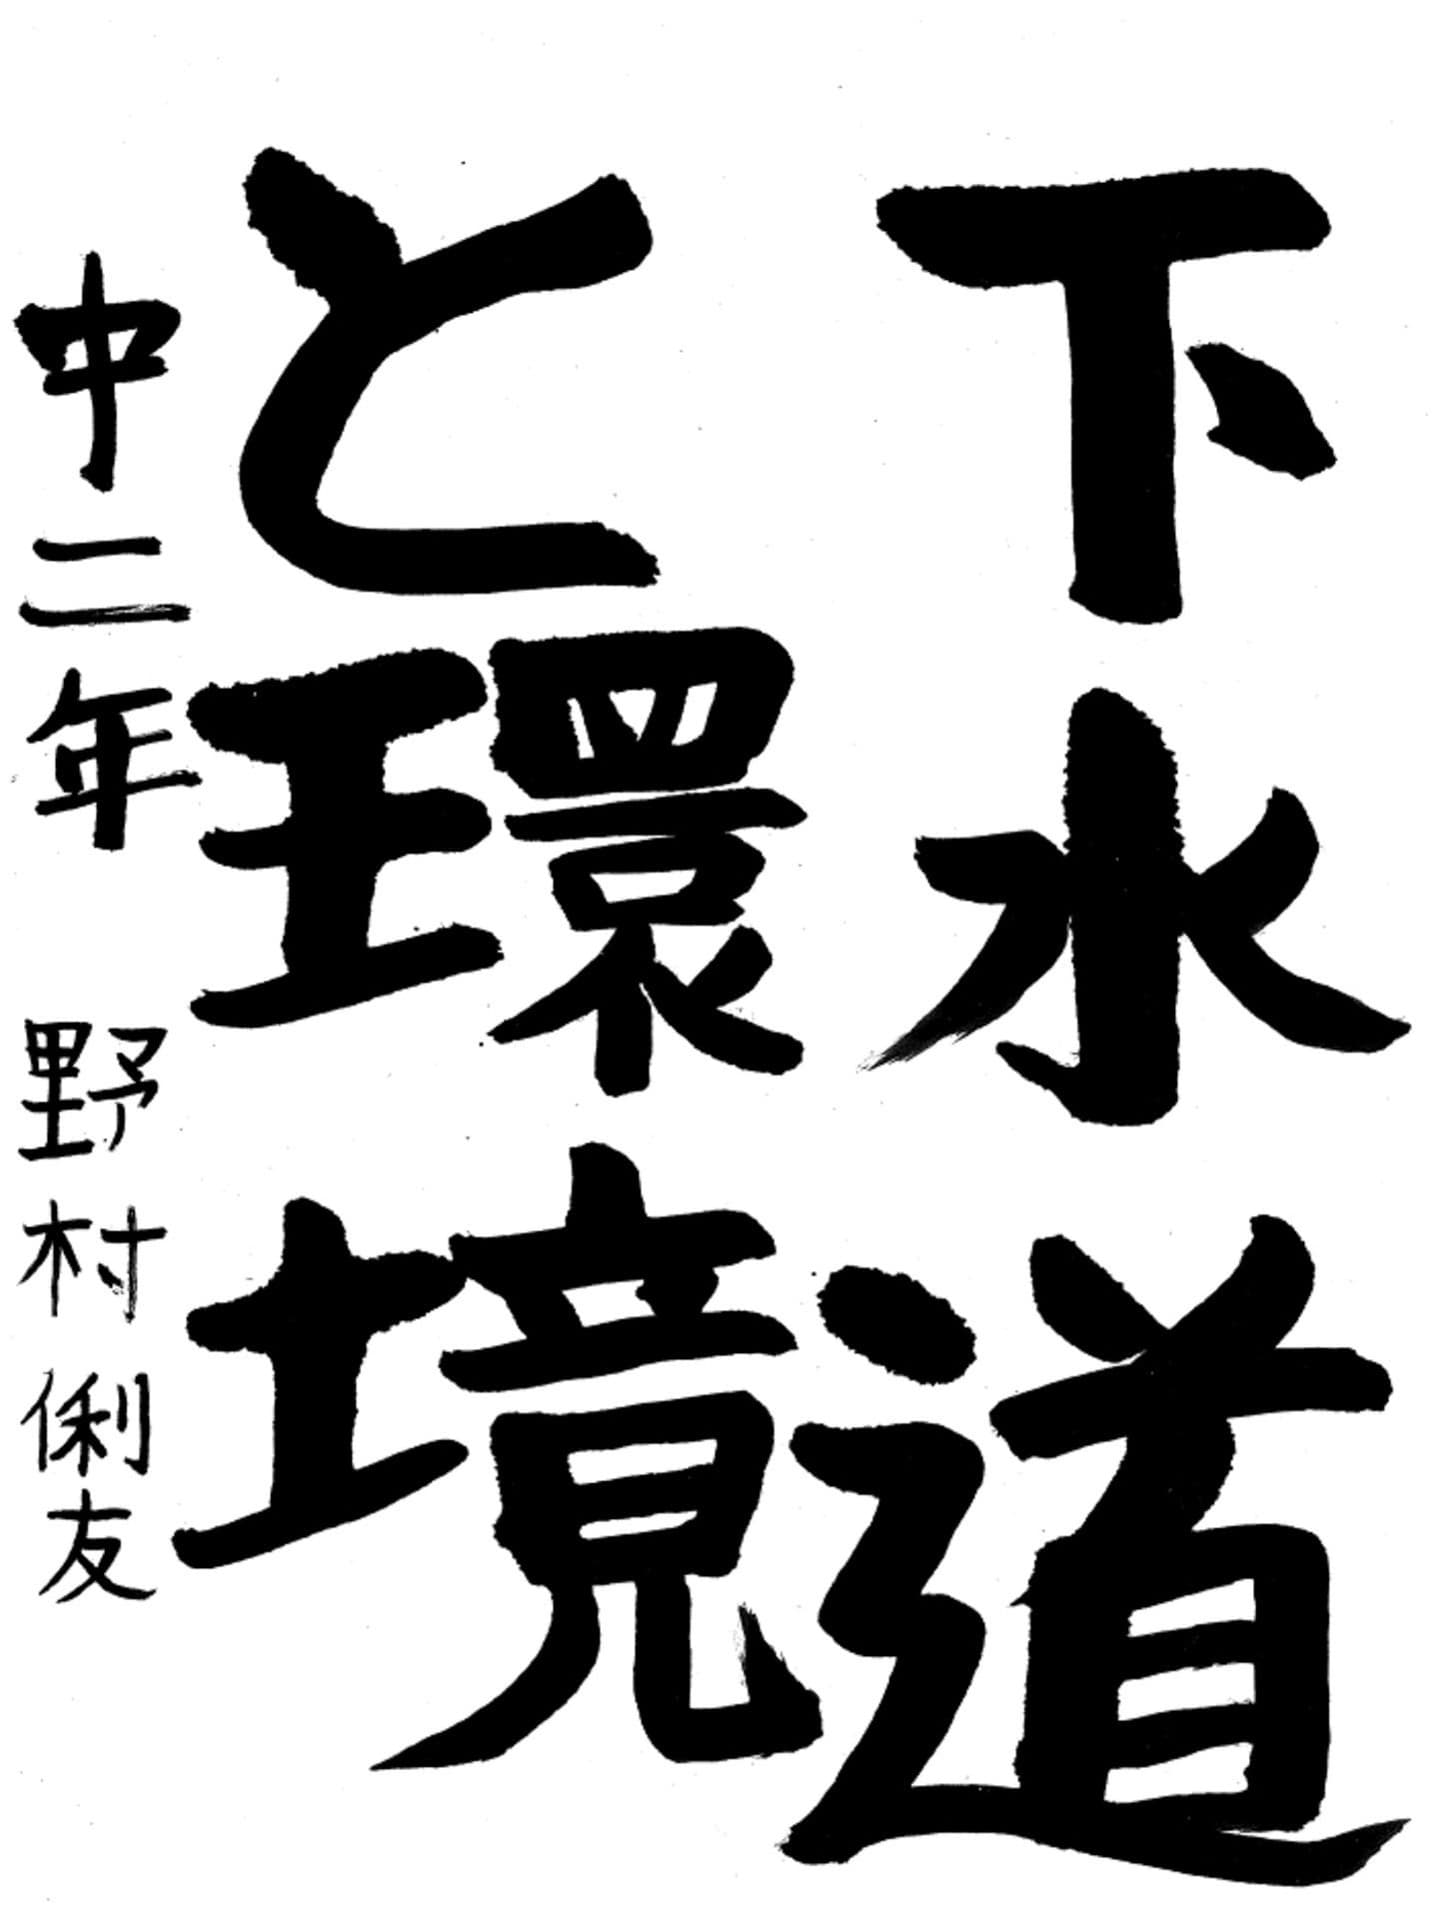 下水道
と環境
中二年 野村俐友